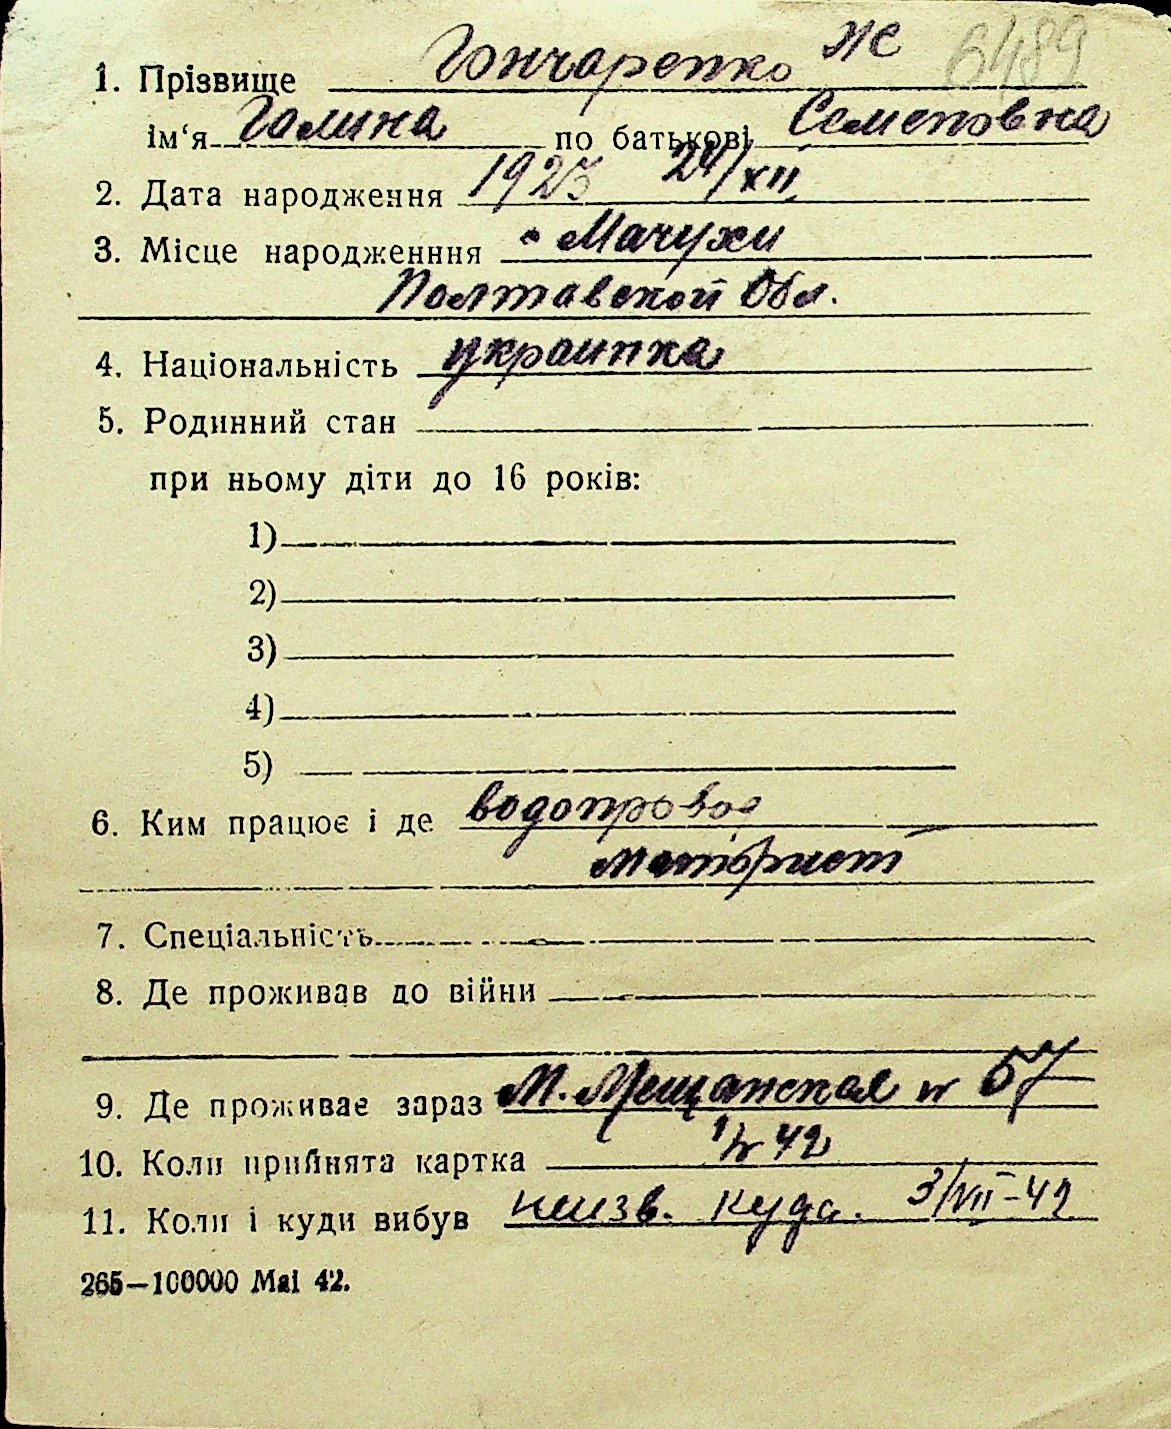 же 6489
1. Прізвище Гончаренко
ім‘я Галина по батькові Семеновна
2. Дата народження 1923 24/XII
3. Місце народженння с Мачухи
Полтавской Обл.
4. Національність украинка
5. Родинний стан
при ньому діти до 16 років:
1)
2)
3)
4)
5)
6. Ким працює і де водопровод
моторист
7. Спеціальність
8. Де проживав до війни
9. Де проживає зараз М. Мещанская № 57
10. Коли прийнята картка 42
11. Коли і куди вибув неизв. куда. 3/VII-42
265—100000 Mai 42.